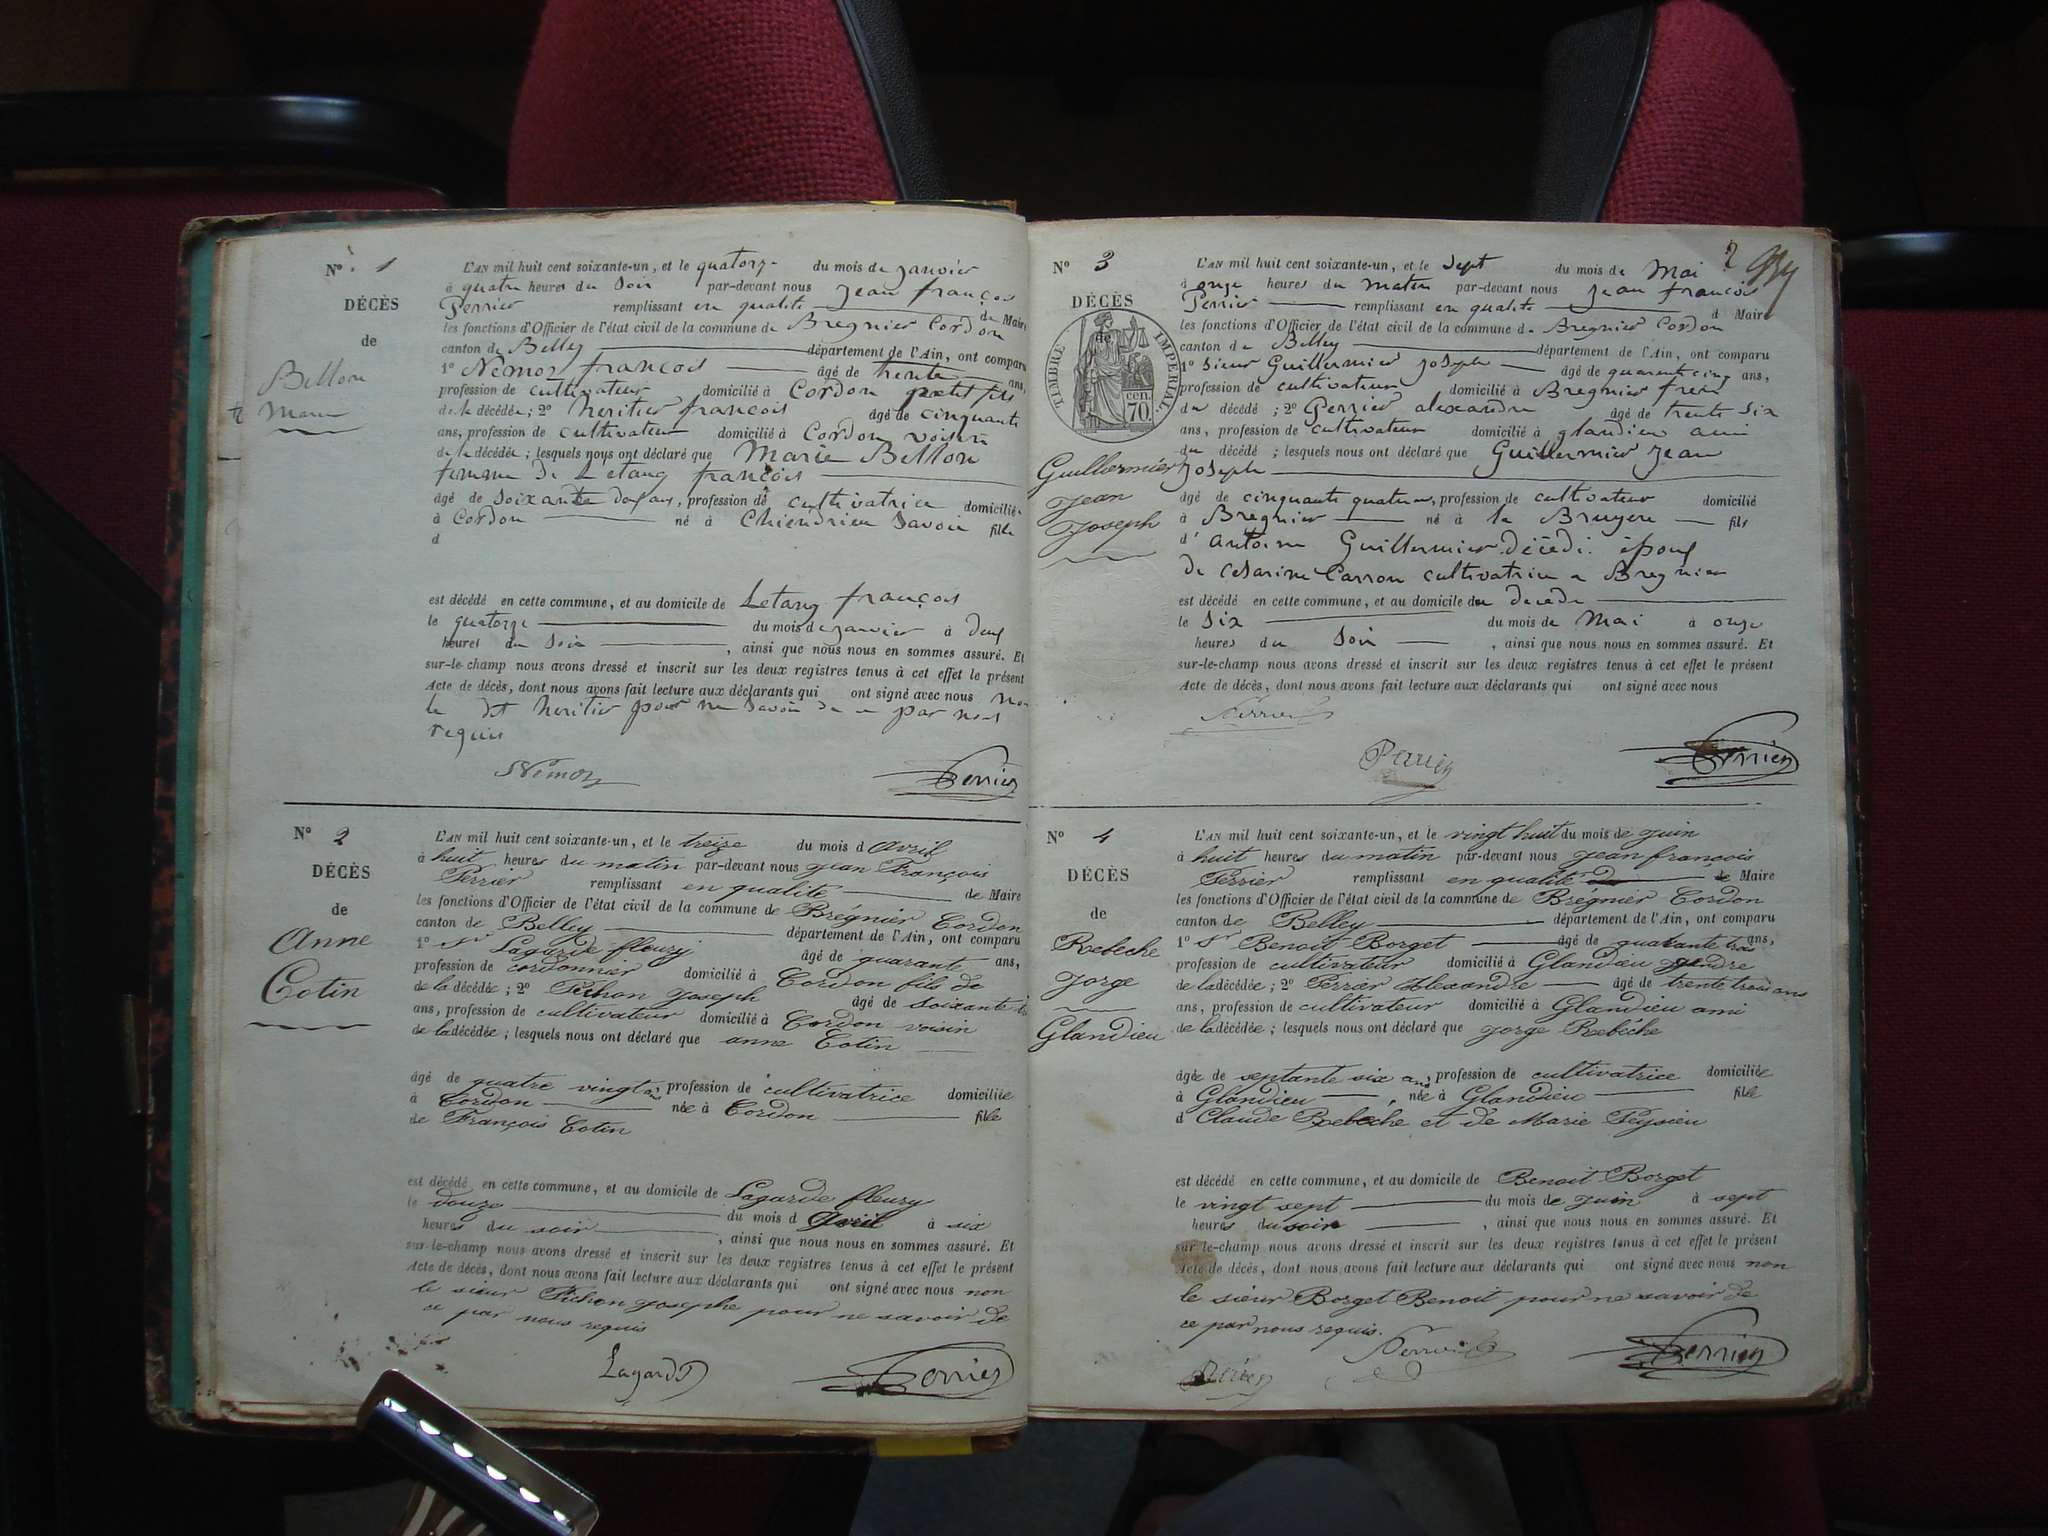 N° 1
DÉCÈS
de
Bellon
Marie
L'AN mil huit cent soixante-un, et le quatorze du mois de janvier
à quatre heures du soir par-devant nous jean françois
Perrier remplissant en qualité de Maire
les fonctions d'Officier de l'état civil de la commune de Bregnier Cordon
canton de Belley département de l'Ain, ont comparu
1° Nemoz françois âgé de trente ans,
profession de cultivateur domicilié à Cordon petit fils
de la décédée; 2° heritier françois âgé de cinquante
ans, profession de cultivateur domicilié à Cordon voisin
de la décédée; lesquels nous ont déclaré que Marie Bellon
femme de Letang françois
âgé de soixante profession de cultivatrice domiciliée
à Cordon né à Chiendrieu Savoie fille
d
est décédé en cette commune, et au domicile de Letang françois
le quatorze du mois de janvier à deux
heures du soir, ainsi que nous nous en sommes assuré. Et
sur-le-champ nous avons dressé et inscrit sur les deux registres tenus à cet effet le présent
Acte de décès, dont nous avons fait lecture aux déclarants qui ont signé avec nous non
le dit heritier pour ne savoir de ce par nous
requis
Némoz Perrier
N° 2
DÉCÈS
de
Anne
Cotin
L'AN mil huit cent soixante-un, et le treize du mois d avril
à huit heures du matin par-devant nous jean François
Perrier remplissant en qualité de Maire
les fonctions d'Officier de l'état civil de la commune de Brégnier Cordon
canton de Belley département de l'Ain, ont comparu
1° Sr Lagarde fleury âgé de quarante ans,
profession de cordonnier domicilié à Cordon fils de
de la décédée; 2° Pichon joseph âgé de soixante
ans, profession de cultivateur domicilié à Cordon voisin
de la décédée; lesquels nous ont déclaré que anne Cotin
âgé de quatre vingt ans, profession de cultivatrice domiciliée
à Cordon née à Cordon fille
de François Cotin
est décédé en cette commune, et au domicile de Lagarde fleury
le douze du mois d avril à six
heures du soir, ainsi que nous nous en sommes assuré. Et
sur-le-champ nous avons dressé et inscrit sur les deux registres tenus à cet effet le présent
Acte de décès, dont nous avons fait lecture aux déclarants qui ont signé avec nous non
le sieur Pichon josephe pour ne savoir de
ce par nous requis
Lagarde Perrier
2
N° 3
DÉCÈS
de
TIMBRE IMPÉRIAL
70 cen.
Guillermier
jean
joseph
L'AN mil huit cent soixante-un, et le sept du mois de Mai
à onze heures du matin par-devant nous jean françois
Perrier remplissant en qualité d Maire
les fonctions d'Officier de l'état civil de la commune de Bregnier Cordon
canton de Belley département de l'Ain, ont comparu
1° sieur Guillermier joseph âgé de quarente cinq ans,
profession de cultivateur domicilié à Bregnier frere
du décédé; 2° Perrier alexandre âgé de trente six
ans, profession de cultivateur domicilié à glandieu ami
du décédé; lesquels nous ont déclaré que Guillermier jean
joseph
âgé de cinquante quatre, profession de cultivateur domicilié
à Bregnier né à la Bruyere fils
d' antoine Guillermier décédé époux
de Cesarine Carron cultivatrice a Bregnier
est décédé en cette commune, et au domicile du decede
le six du mois de Mai à onze
heures du soir, ainsi que nous nous en sommes assuré. Et
sur-le-champ nous avons dressé et inscrit sur les deux registres tenus à cet effet le présent
Acte de décès, dont nous avons fait lecture aux déclarants qui ont signé avec nous
Perrier Perrier
N° 4
DÉCÈS
de
Rebeche
jorge
Glandieu
L'AN mil huit cent soixante-un, et le vingt huit du mois de juin
à huit heures du matin par-devant nous jean françois
Perrier remplissant en qualité de Maire
les fonctions d'Officier de l'état civil de la commune de Brégnier Cordon
canton de Belley département de l'Ain, ont comparu
1° Sr Benoit Borget âgé de quarante trois ans,
profession de cultivateur domicilié à Glandieu gendre
de la décédée; 2° Perrier Alexandre âgé de trente trois ans
ans, profession de cultivateur domicilié à Glandieu ami
de la décédée; lesquels nous ont déclaré que jorge Rebéche
âgée de septante six ans, profession de cultivatrice domiciliée
à Glandieu née à Glandieu fille
d Claude Rebeche et de Marie Peysieu
est décédé en cette commune, et au domicile de Benoit Borget
le vingt sept du mois de juin à sept
heures du soir, ainsi que nous nous en sommes assuré. Et
sur-le-champ nous avons dressé et inscrit sur les deux registres tenus à cet effet le présent
Acte de décès, dont nous avons fait lecture aux déclarants qui ont signé avec nous non
le sieur Borget Benoit pour ne savoir de
ce par nous requis.
Perrier